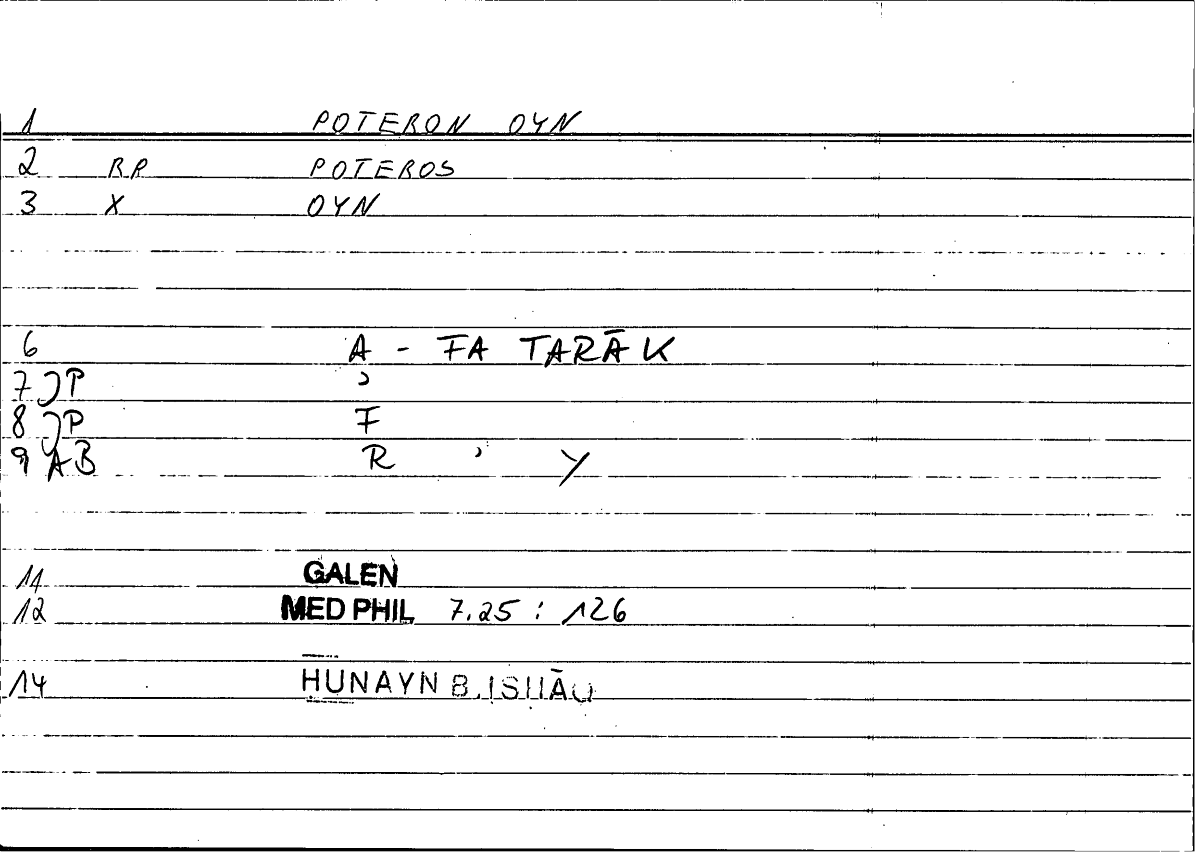 1 POTERON OYN
2 RP POTEROS
3 X OYN
6 A - FA TARĀK
7 JP ʾ
8 JP F
9 AB R ʾ Y
11 GALEN
12 MED PHIL 7.25 : 126
14 ḤUNAYN B. ISḤĀQ